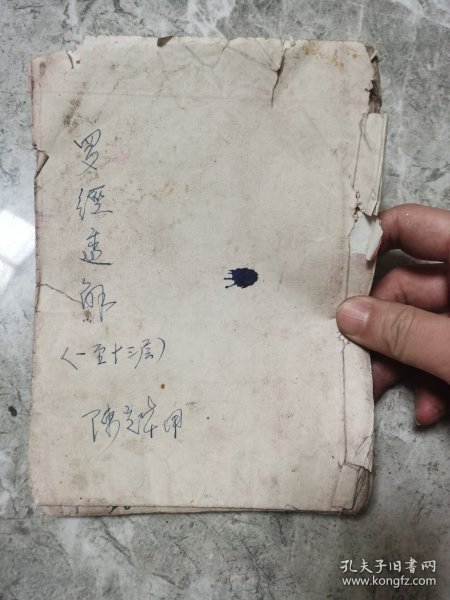 罗經透解
(一至十三层)
孔夫子旧书网
www.kongfz.com